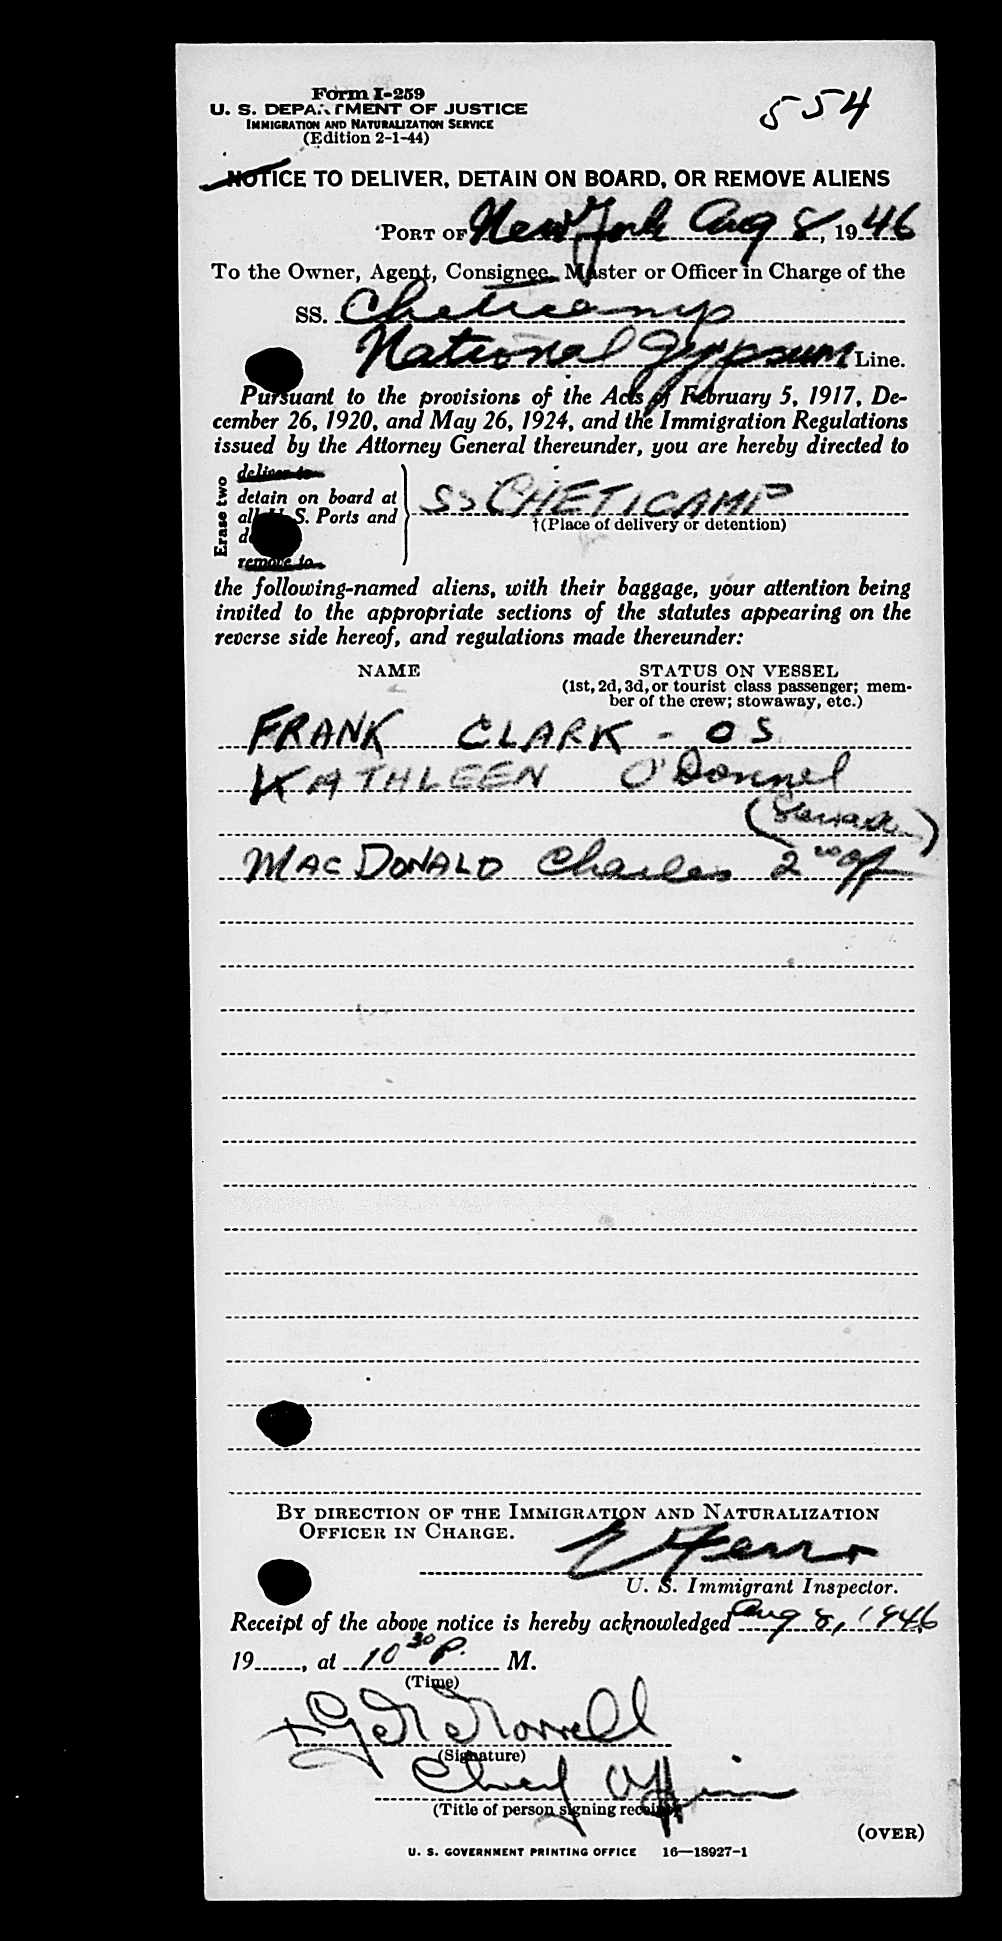 Form I-259
554
U. S. DEPARTMENT OF JUSTICE
IMMIGRATION AND NATURALIZATION SERVICE
(Edition 2-1-44)
NOTICE TO DELIVER, DETAIN ON BOARD, OR REMOVE ALIENS
PORT OF New York Aug 8, 1946
To the Owner, Agent, Consignee, Master or Officer in Charge of the
SS. Cheticamp
National Gypsum Line.
Pursuant to the provisions of the Acts of February 5, 1917, De-
cember 26, 1920, and May 26, 1924, and the Immigration Regulations
issued by the Attorney General thereunder, you are hereby directed to
Erase two
deliver to
detain on board at
all U. S. Ports and
remove to
SS CHETICAMP
†(Place of delivery or detention)
the following-named aliens, with their baggage, your attention being
invited to the appropriate sections of the statutes appearing on the
reverse side hereof, and regulations made thereunder:
NAME STATUS ON VESSEL
(1st, 2d, 3d, or tourist class passenger; mem-
ber of the crew; stowaway, etc.)
FRANK CLARK - OS
KATHLEEN O'Donnel
MACDONALD Charles 2nd Off
BY DIRECTION OF THE IMMIGRATION AND NATURALIZATION
OFFICER IN CHARGE.
U. S. Immigrant Inspector.
Receipt of the above notice is hereby acknowledged Aug 8, 1946
19......, at 10 30 P. M.
(Time)
(Signature)
Chief Officer
(Title of person signing receipt)
(OVER)
U. S. GOVERNMENT PRINTING OFFICE 16—18927-1